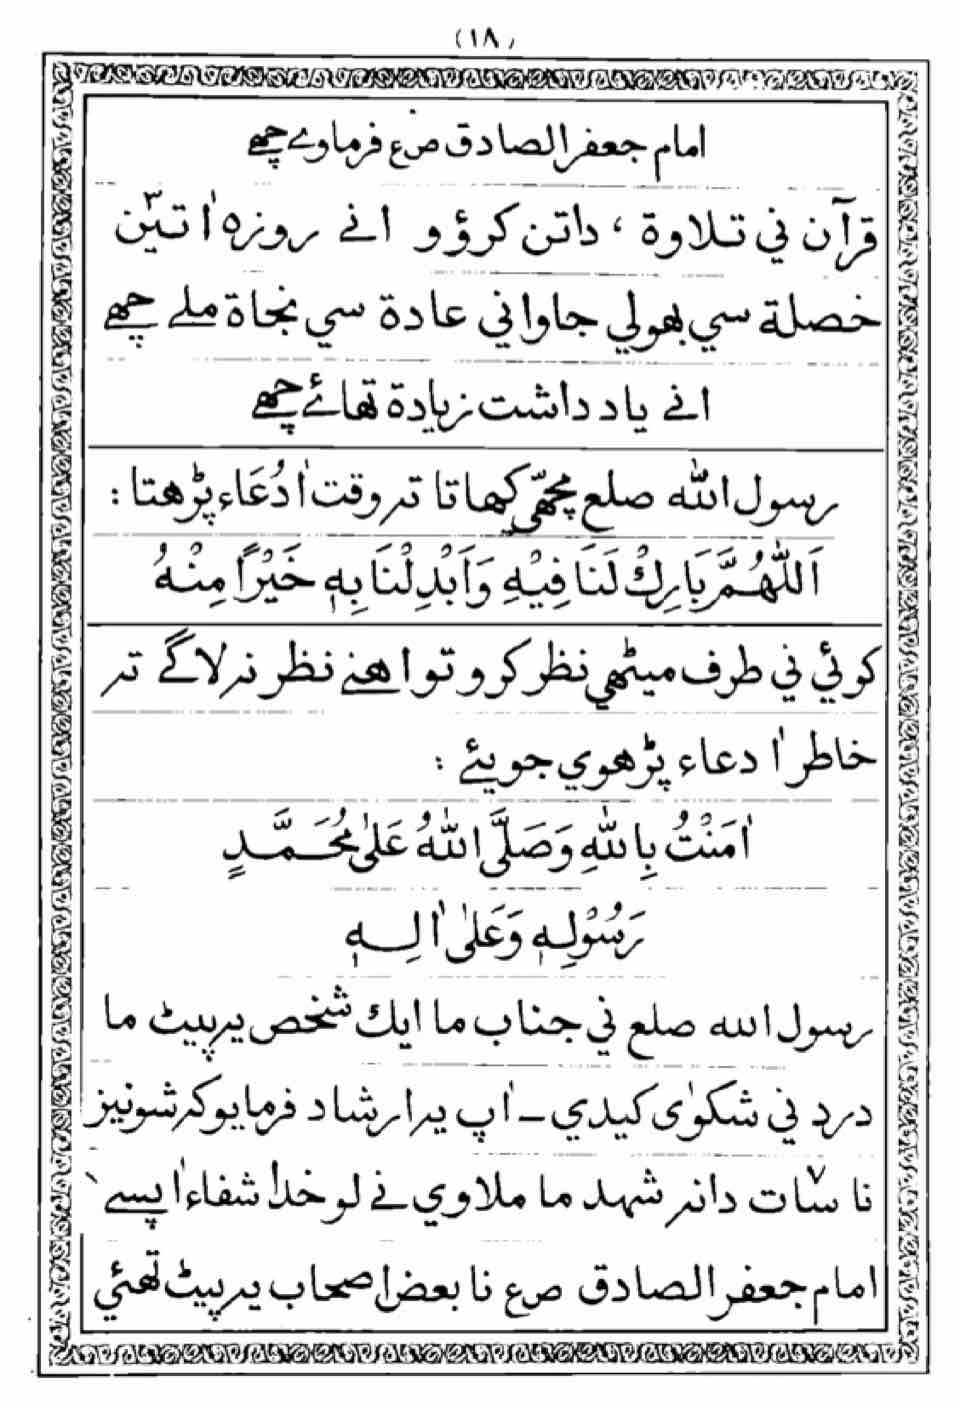 (١٨)
امام جعفر الصادق صع فرماوے چھے
قرآن ني تلاوة ، داتن كرؤو انے روزه اٰ تين ٣
خصلة سي بھولي جاواني عادة سي نجاة ملے چھے
انے ياد داشت زيادة تھائے چھے
رسول الله صلع مچھّي كھاتا تہ وقت اٰ دُعَاء پڑھتا :
اَللّٰهُمَّ بَارِكْ لَنَا فِيْهِ وَاَبْدِلْنَا بِهٖ خَيْرًا مِنْهُ
كوئي ني طرف ميٹھي نظر كرو تو اهنے نظر نہ لاگے تہ
خاطر اٰ دعاء پڑھوي جويئے :
اٰمَنْتُ بِاللهِ وَصَلَّى اللهُ عَلٰى مُحَمَّدٍ
رَسُوْلِهٖ وَعَلٰى اٰلِهٖ
رسول الله صلع ني جناب ما ايك شخص يہ پيٹ ما
درد ني شكوٰى كيدي ـ اٰپ يہ ارشاد فرمايو كہ شونيز
نا سات ٧ دانہ شهد ما ملاوي نے لو خدا شفاء اٰپسے
امام جعفر الصادق صع نا بعض اصحاب يہ پيٹ تھئي